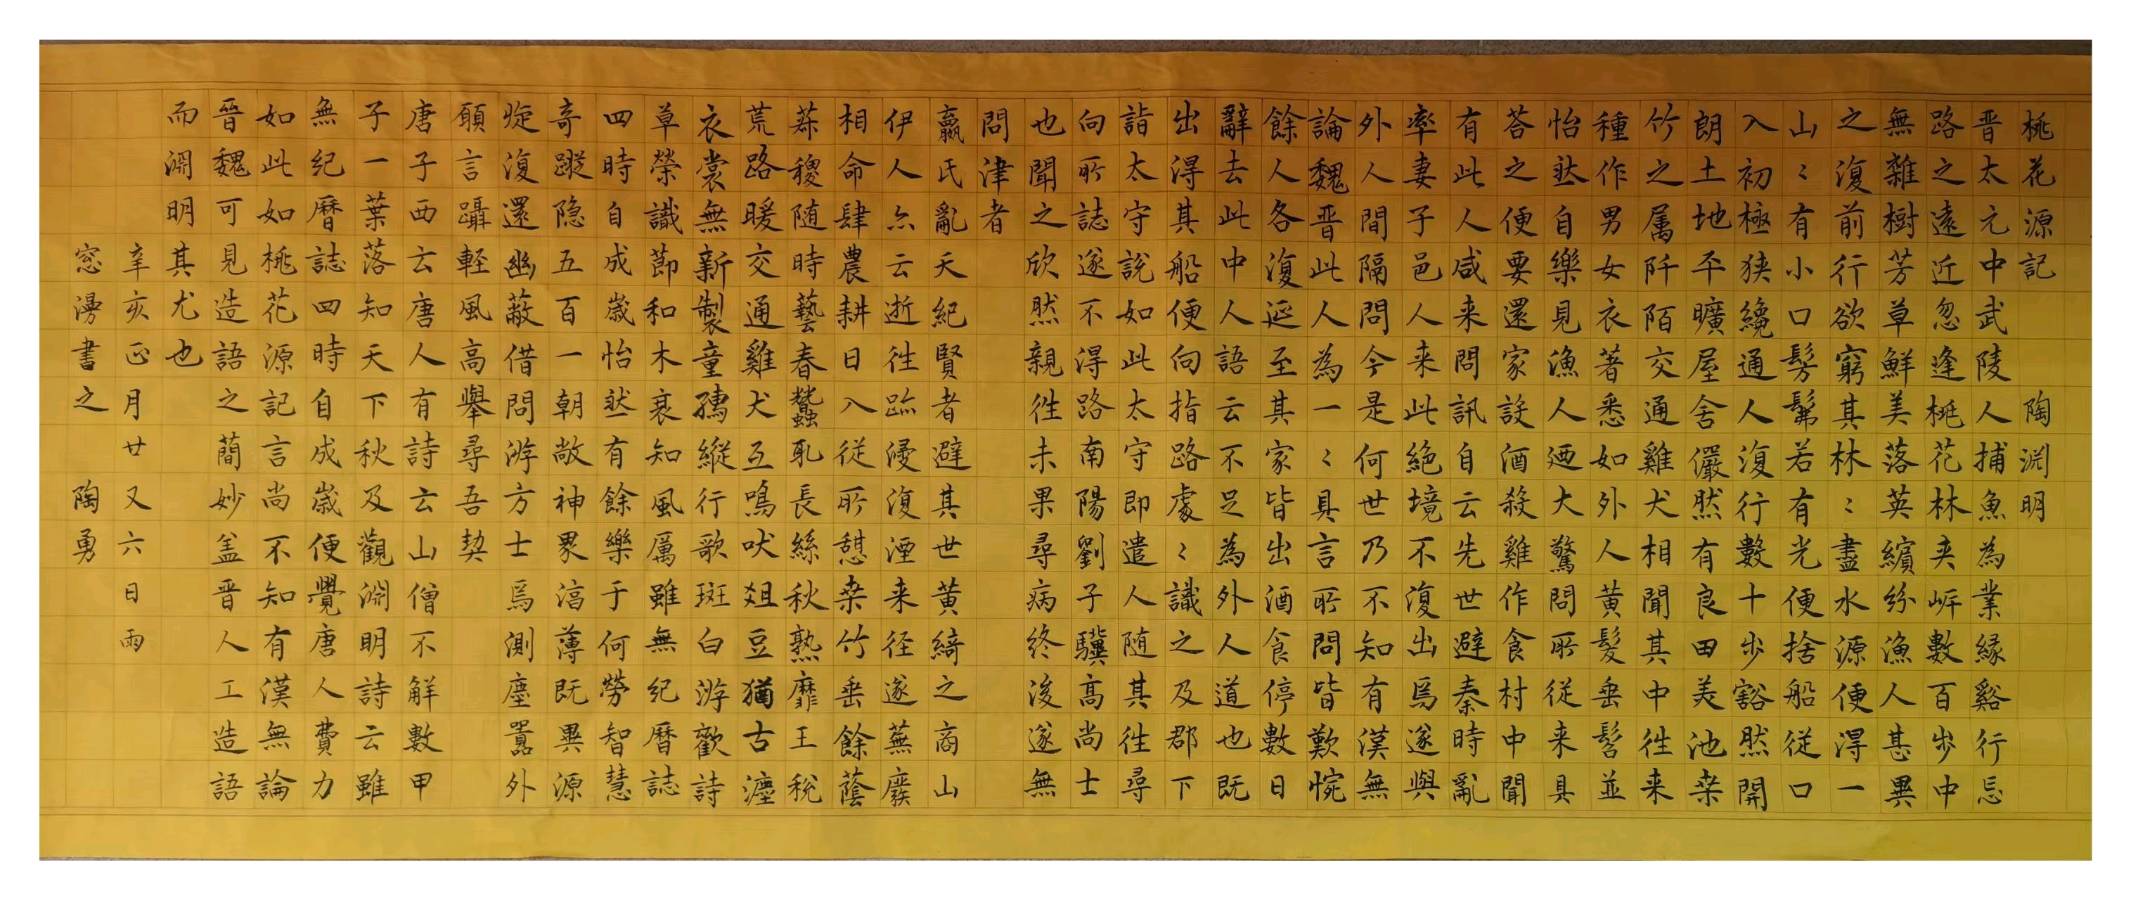 桃花源記　陶淵明
晋太元中武陵人捕魚為業緣谿行忘
路之遠近忽逢桃花林夹岍數百步中
無雜樹芳草鮮美落英繽紛漁人甚異
之復前行欲窮其林〻盡水源便得一
山〻有小口髣髴若有光便捨船従口
入初極狭纔通人復行數十步豁然開
朗土地平曠屋舍儼然有良田美池桒
竹之属阡陌交通雞犬相聞其中往来
種作男女衣著悉如外人黄髮垂髫並
怡然自樂見漁人廼大驚問所従来具
荅之便要還家設酒殺雞作食村中聞
有此人咸来問訊自云先世避秦時亂
率妻子邑人来此絶境不復出焉遂與
外人間隔問今是何世乃不知有漢無
論魏晋此人為一〻具言所問皆歎惋
餘人各復延至其家皆出酒食停數日
辭去此中人語云不足為外人道也既
出得其船便向指路處〻識之及郡下
詣太守說如此太守即遣人随其往尋
向所誌遂不得路南陽劉子驥高尚士
也聞之欣然親往未果尋病終後遂無
問津者
嬴氏亂天紀賢者避其世黄綺之商山
伊人亦云逝往跡浸復湮来径遂蕪廢
相命肆農耕日入従所憩桒竹垂餘蔭
菽稷随時藝春蠶収長絲秋熟靡王稅
荒路暖交通雞犬互鳴吠俎豆猶古灋
衣裳無新製童孺縱行歌斑白游歡詩
草榮識節和木衰知風厲雖無紀曆誌
四時自成歲怡然有餘樂于何勞智慧
奇蹤隐五百一朝敞神界淳薄既異源
旋復還幽蔽借問游方士焉測塵囂外
願言躡軽風高舉尋吾契
唐子西云唐人有詩云山僧不解數甲
子一葉落知天下秋及觀淵明詩云雖
無紀曆誌四時自成歲便覺唐人費力
如此如桃花源記言尚不知有漢無論
晉魏可見造語之蕳妙盖晋人工造語
而淵明其尤也
辛亥正月廿又六日雨
窓漫書之　陶勇